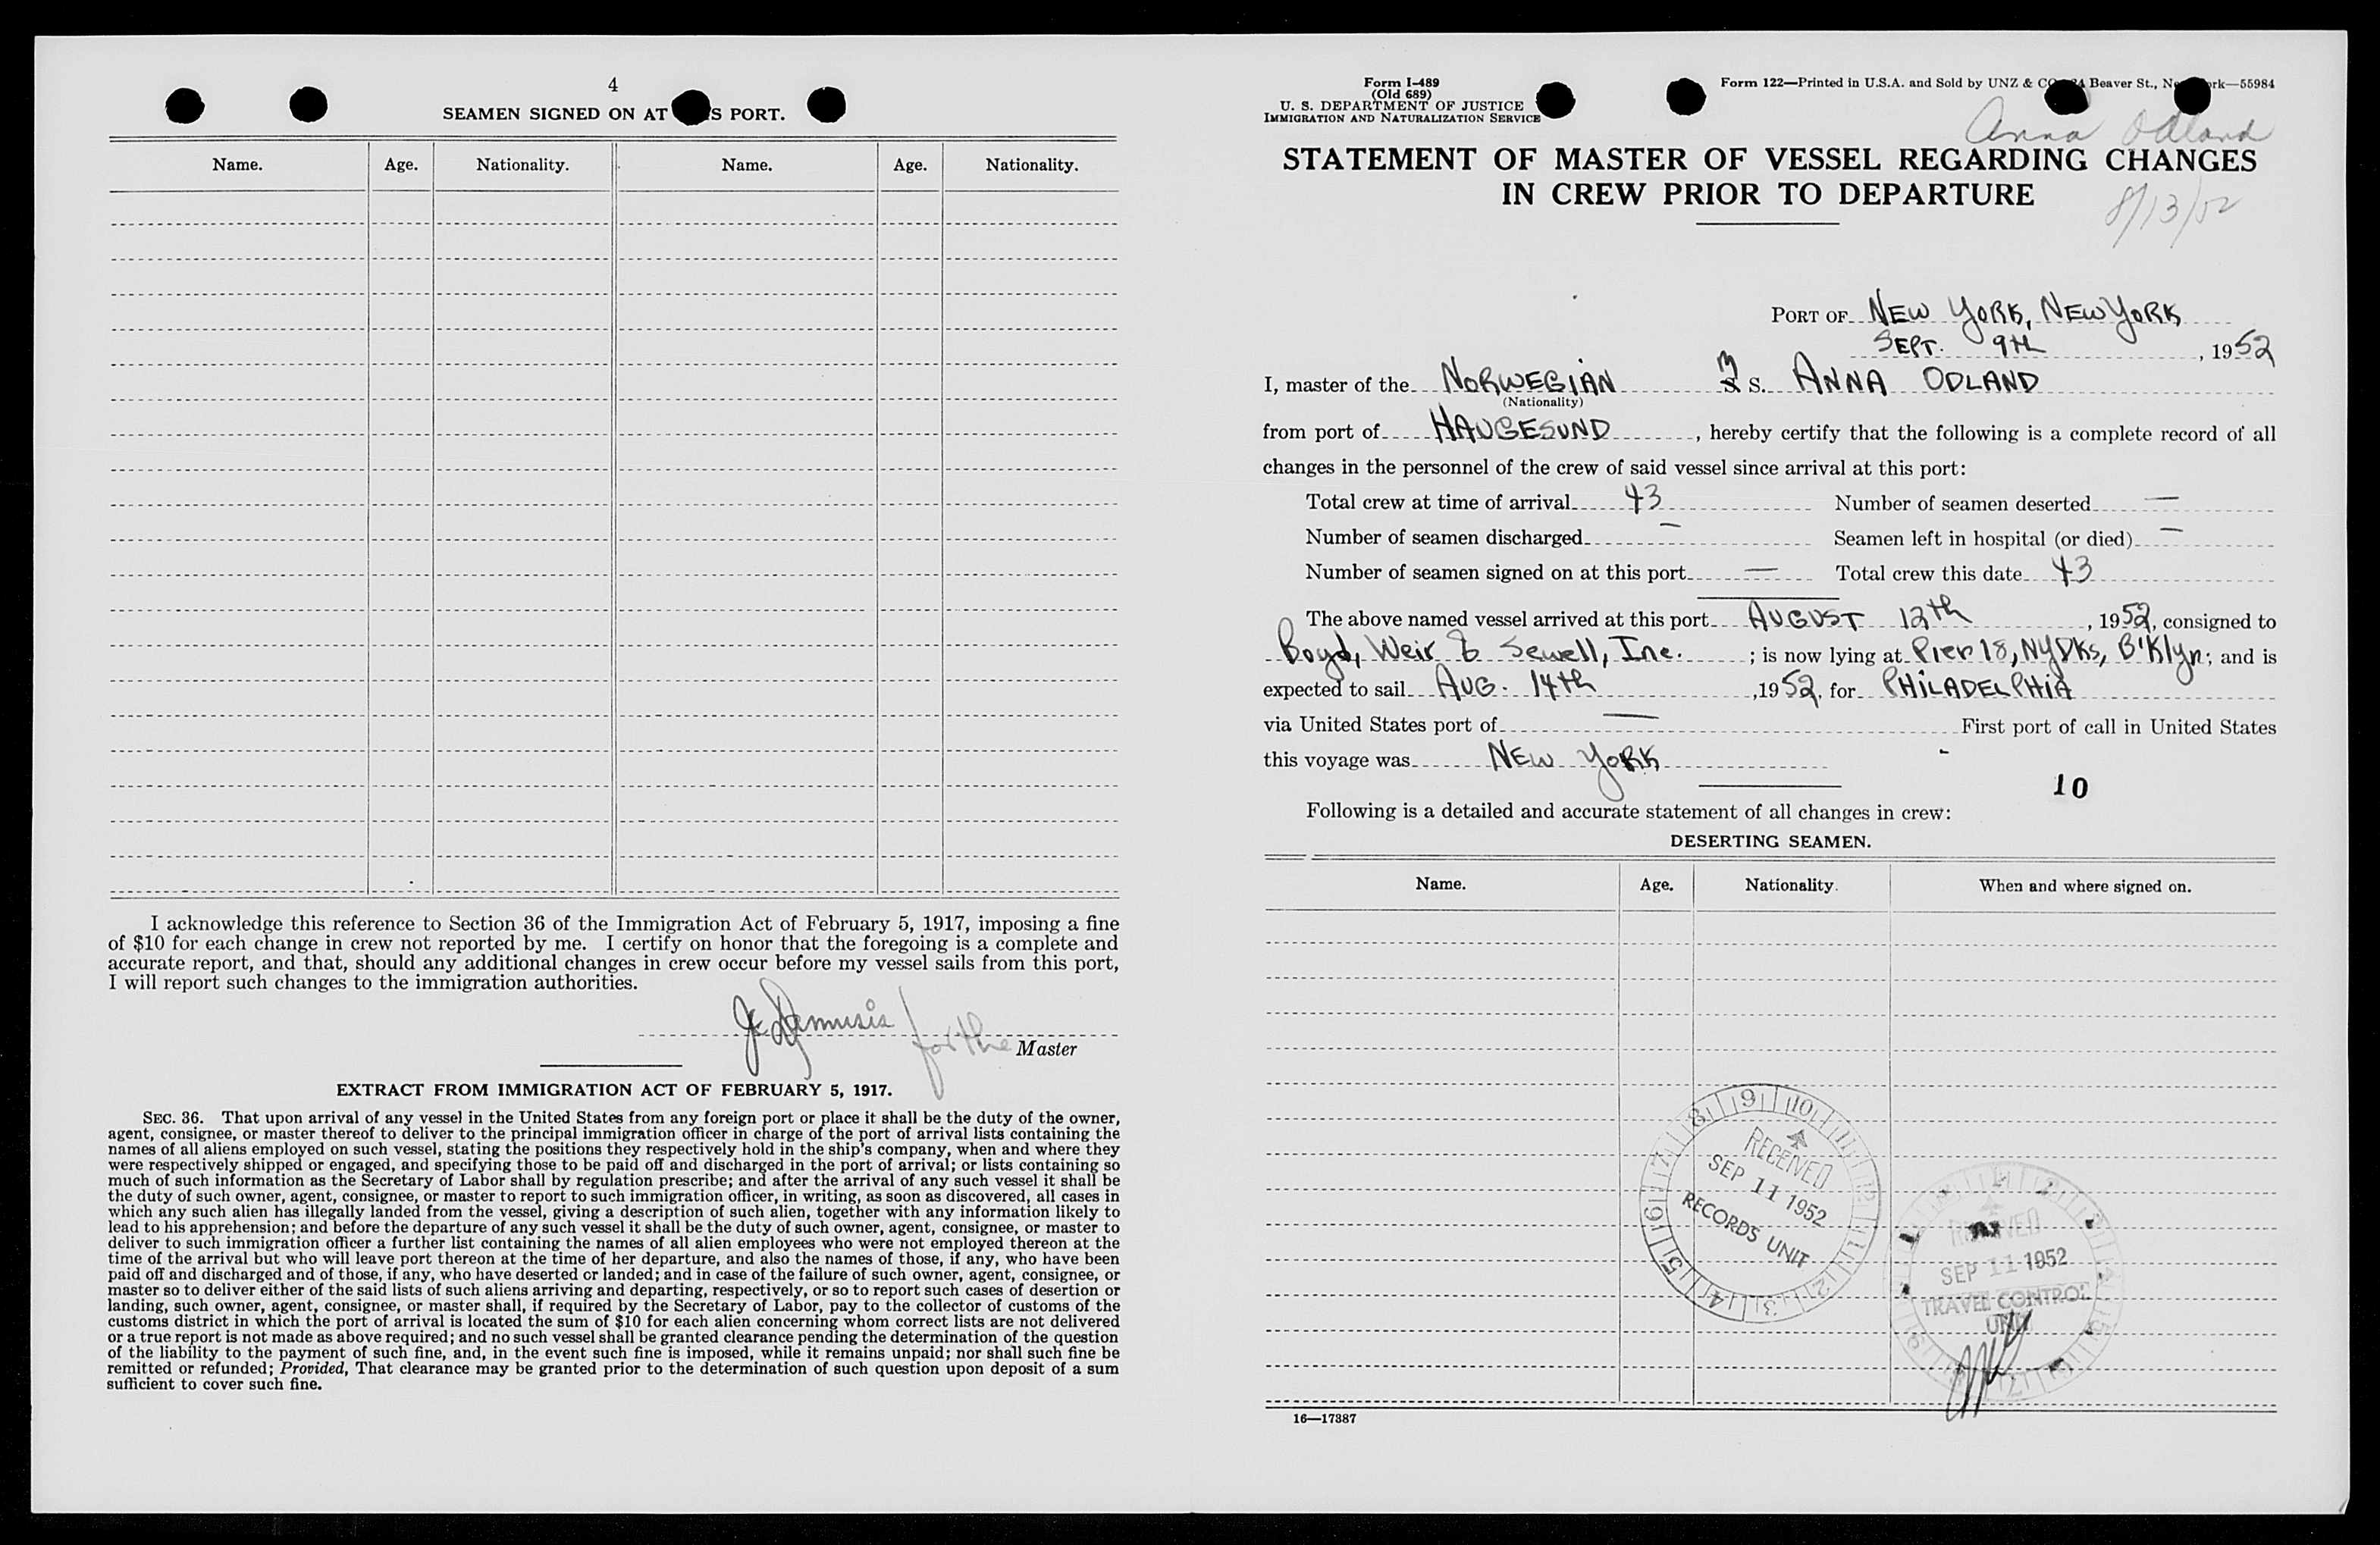 4
SEAMEN SIGNED ON AT S PORT.
Name. Age. Nationality. Name. Age. Nationality.
I acknowledge this reference to Section 36 of the Immigration Act of February 5, 1917, imposing a fine
of $10 for each change in crew not reported by me. I certify on honor that the foregoing is a complete and
accurate report, and that, should any additional changes in crew occur before my vessel sails from this port,
I will report such changes to the immigration authorities.
for the Master
EXTRACT FROM IMMIGRATION ACT OF FEBRUARY 5, 1917.
SEC. 36. That upon arrival of any vessel in the United States from any foreign port or place it shall be the duty of the owner,
agent, consignee, or master thereof to deliver to the principal immigration officer in charge of the port of arrival lists containing the
names of all aliens employed on such vessel, stating the positions they respectively hold in the ship's company, when and where they
were respectively shipped or engaged, and specifying those to be paid off and discharged in the port of arrival; or lists containing so
much of such information as the Secretary of Labor shall by regulation prescribe; and after the arrival of any such vessel it shall be
the duty of such owner, agent, consignee, or master to report to such immigration officer, in writing, as soon as discovered, all cases in
which any such alien has illegally landed from the vessel, giving a description of such alien, together with any information likely to
lead to his apprehension; and before the departure of any such vessel it shall be the duty of such owner, agent, consignee, or master to
deliver to such immigration officer a further list containing the names of all alien employees who were not employed thereon at the
time of the arrival but who will leave port thereon at the time of her departure, and also the names of those, if any, who have been
paid off and discharged and of those, if any, who have deserted or landed; and in case of the failure of such owner, agent, consignee, or
master so to deliver either of the said lists of such aliens arriving and departing, respectively, or so to report such cases of desertion or
landing, such owner, agent, consignee, or master shall, if required by the Secretary of Labor, pay to the collector of customs of the
customs district in which the port of arrival is located the sum of $10 for each alien concerning whom correct lists are not delivered
or a true report is not made as above required; and no such vessel shall be granted clearance pending the determination of the question
of the liability to the payment of such fine, and, in the event such fine is imposed, while it remains unpaid; nor shall such fine be
remitted or refunded; Provided, That clearance may be granted prior to the determination of such question upon deposit of a sum
sufficient to cover such fine.
Form I-489
(Old 689)
U. S. DEPARTMENT OF JUSTICE
IMMIGRATION AND NATURALIZATION SERVICE
Form 122—Printed in U.S.A. and Sold by UNZ & CO Beaver St., New York—55984
Anna Odland
STATEMENT OF MASTER OF VESSEL REGARDING CHANGES
IN CREW PRIOR TO DEPARTURE
8/13/52
PORT OF NEW YORK, NEW YORK
SEPT. 9th, 1952
I, master of the NORWEGIAN M S. ANNA ODLAND
(Nationality)
from port of HAUGESUND, hereby certify that the following is a complete record of all
changes in the personnel of the crew of said vessel since arrival at this port:
Total crew at time of arrival 43 Number of seamen deserted —
Number of seamen discharged — Seamen left in hospital (or died) —
Number of seamen signed on at this port — Total crew this date 43
The above named vessel arrived at this port AUGUST 12th, 1952, consigned to
Boyd, Weir & Sewell, Inc. ; is now lying at Pier 18, NYDKs, B'Klyn; and is
expected to sail AUG. 14th, 1952, for PHILADELPHIA
via United States port of — First port of call in United States
this voyage was NEW YORK
10
Following is a detailed and accurate statement of all changes in crew:
DESERTING SEAMEN.
Name. Age. Nationality. When and where signed on.
RECEIVED
SEP 11 1952
RECORDS UNIT
RECEIVED
SEP 11 1952
TRAVEL CONTROL
UNIT
16—17887